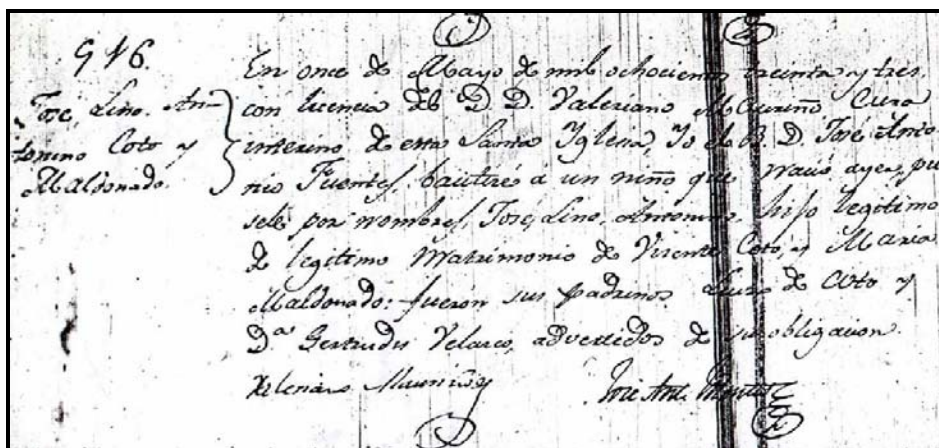 916.
José, Lino. An-
tonino Coto y
Maldonado.
En once de Mayo de mil ochocientos treinta y tres
con licencia del D. D. Valeriano Cura
interino de esta Santa Yglesia, Yo el B. D. José Anto
nio Fuentes, bauticé a un niño que nació ayer, pu
sele por nombres, José, Lino, Antonino, hijo legitimo
de legitimo Matrimonio de Vicente Coto, y Maria
Maldonado: fueron sus padrinos de Coto y
D.ª Gertrudis Velasco, advertidos de su obligacion.
José Ant. Fuentes